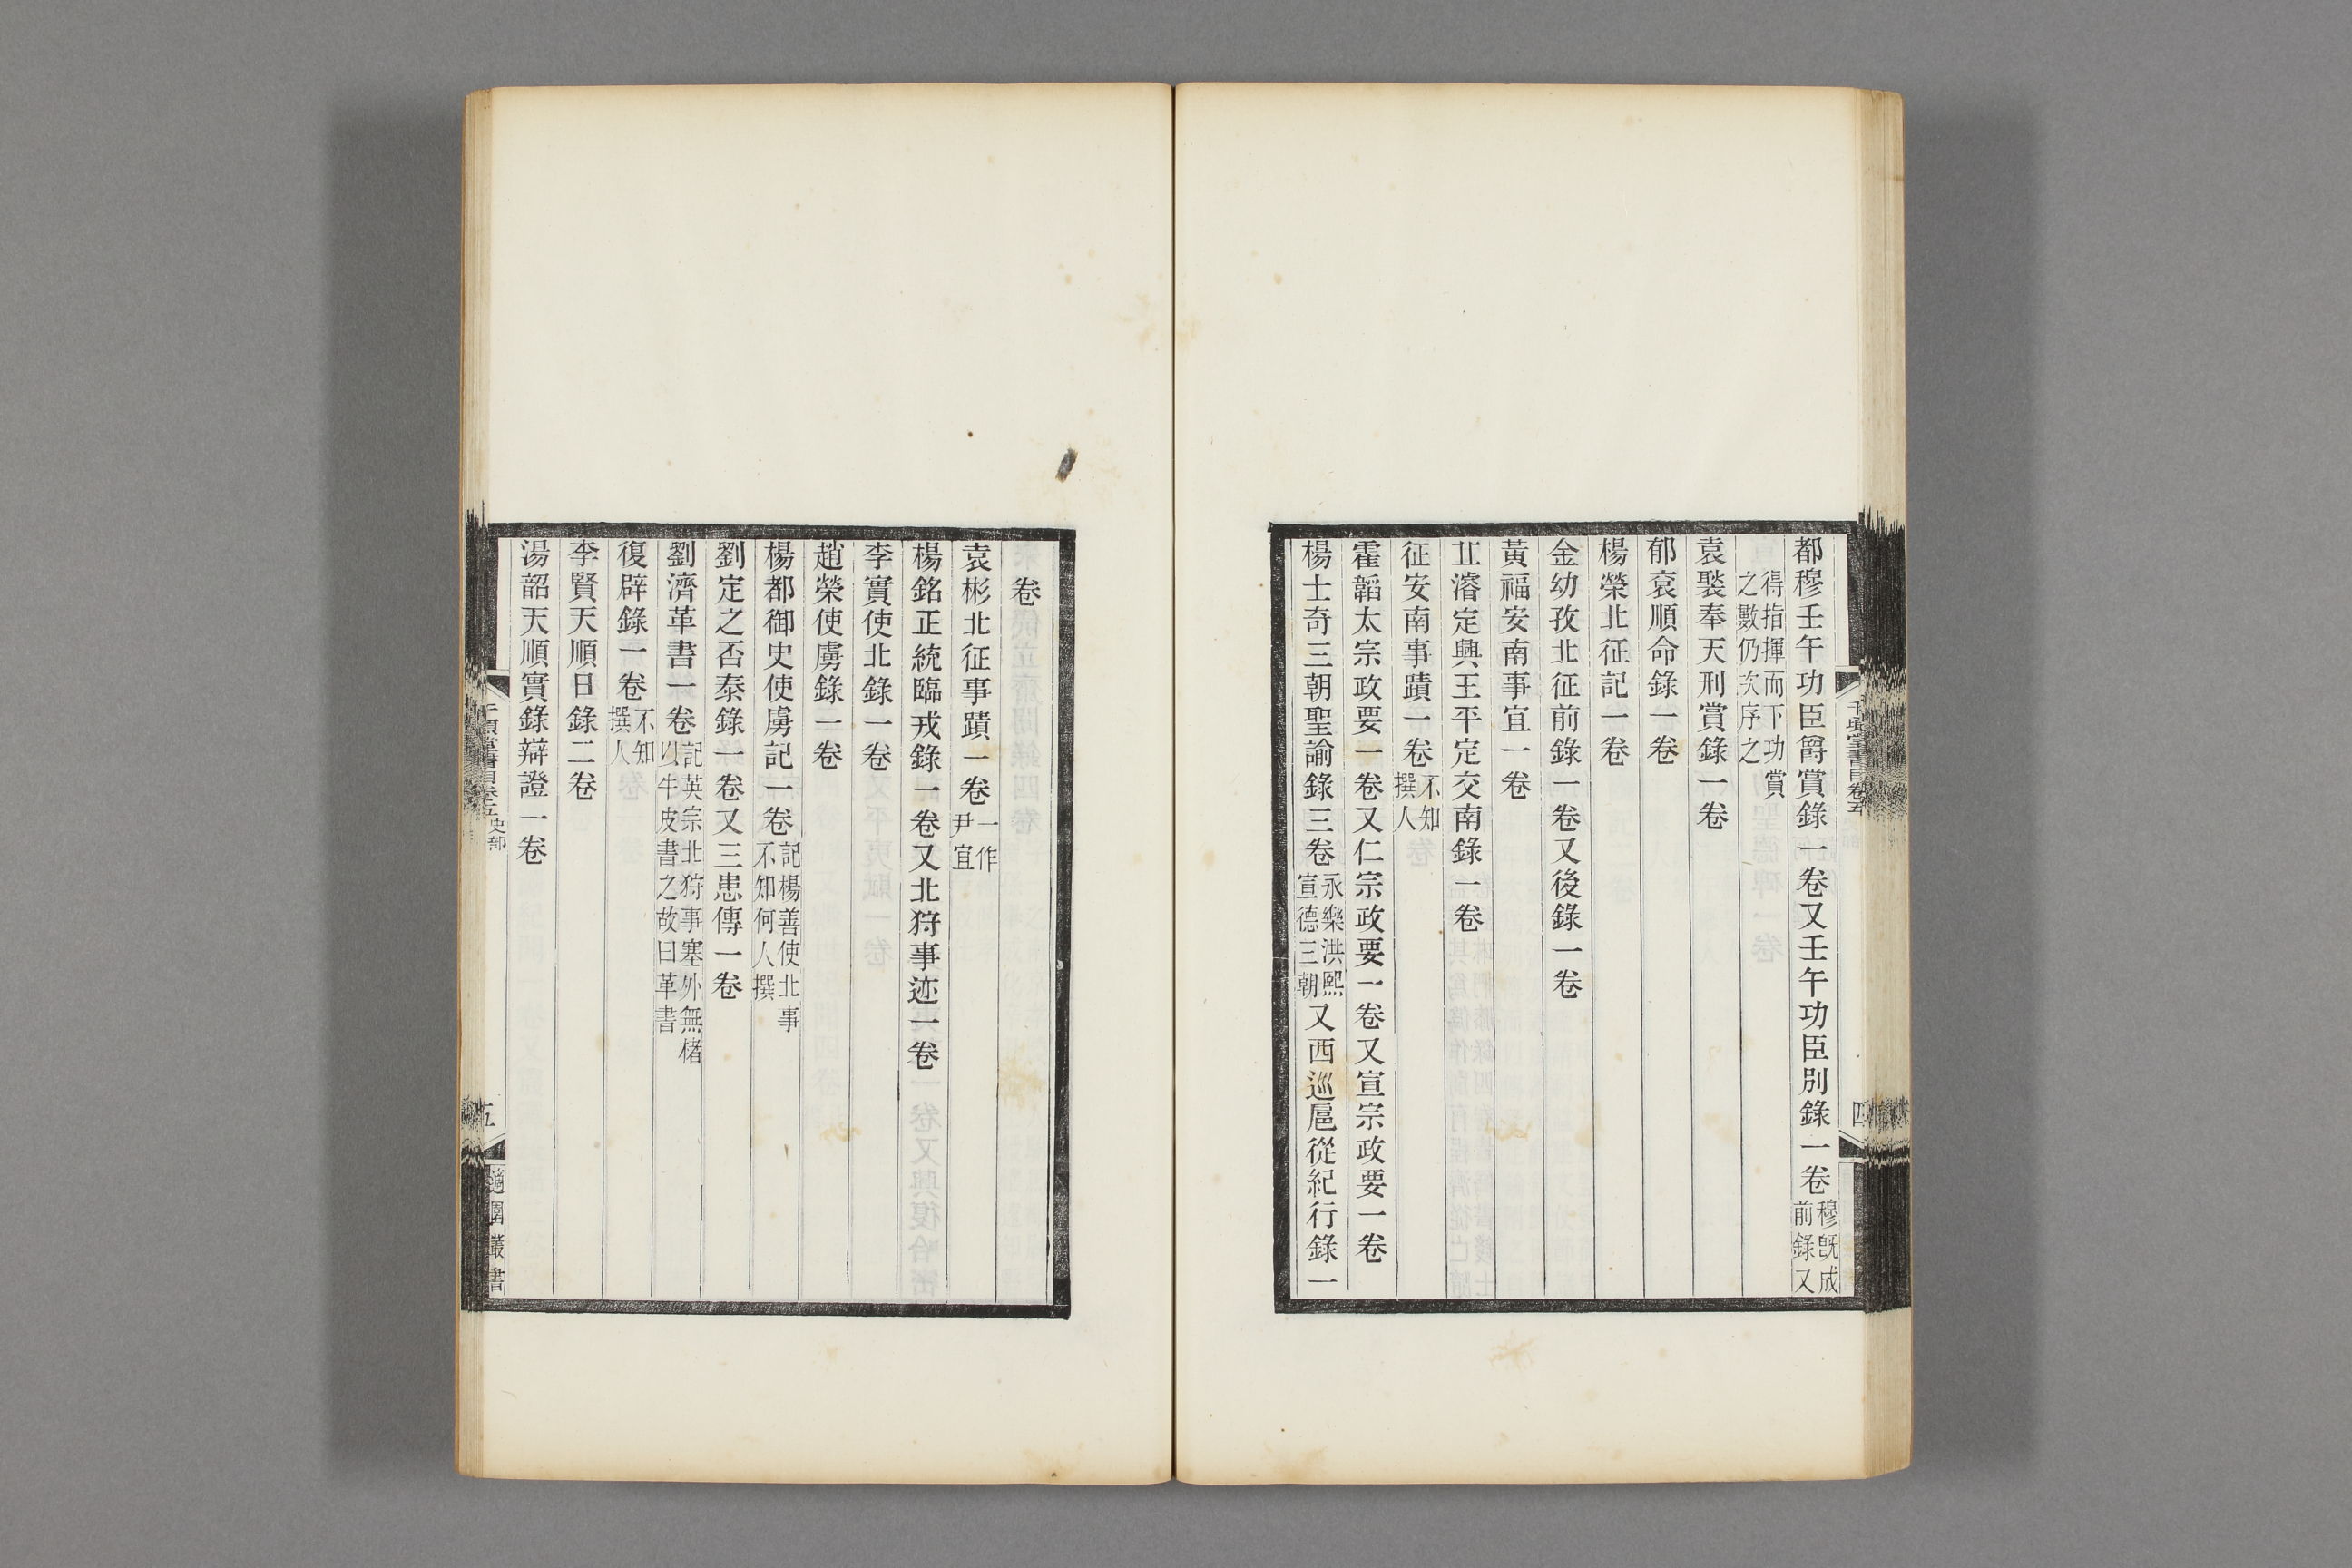 都穆壬午功臣爵賞錄一卷又壬午功臣別錄一卷穆旣成前錄又
得指揮而下功賞之數仍次序之
袁褧奉天刑賞錄一卷
郁袞順命錄一卷
楊榮北征記一卷
金幼孜北征前錄一卷又後錄一卷
黃福安南事宜一卷
丠濬定興王平定交南錄一卷
征安南事蹟一卷不知撰人
霍韜太宗政要一卷又仁宗政要一卷又宣宗政要一卷
楊士奇三朝聖諭錄三卷永樂洪熙宣德三朝又西巡扈從紀行錄一
卷
袁彬北征事蹟一卷一作尹宜
楊銘正統臨戎錄一卷又北狩事迹一卷
李實使北錄一卷
趙榮使虜錄一卷
楊都御史使虜記一卷記楊善使北事不知何人撰
劉定之否泰錄一卷又三患傳一卷
劉濟革書一卷記英宗北狩事塞外無楮以牛皮書之故曰革書
復辟錄一卷不知撰人
李賢天順日錄二卷
湯韶天順實錄辯證一卷
千頃堂書目卷五 史部
五
適園叢書